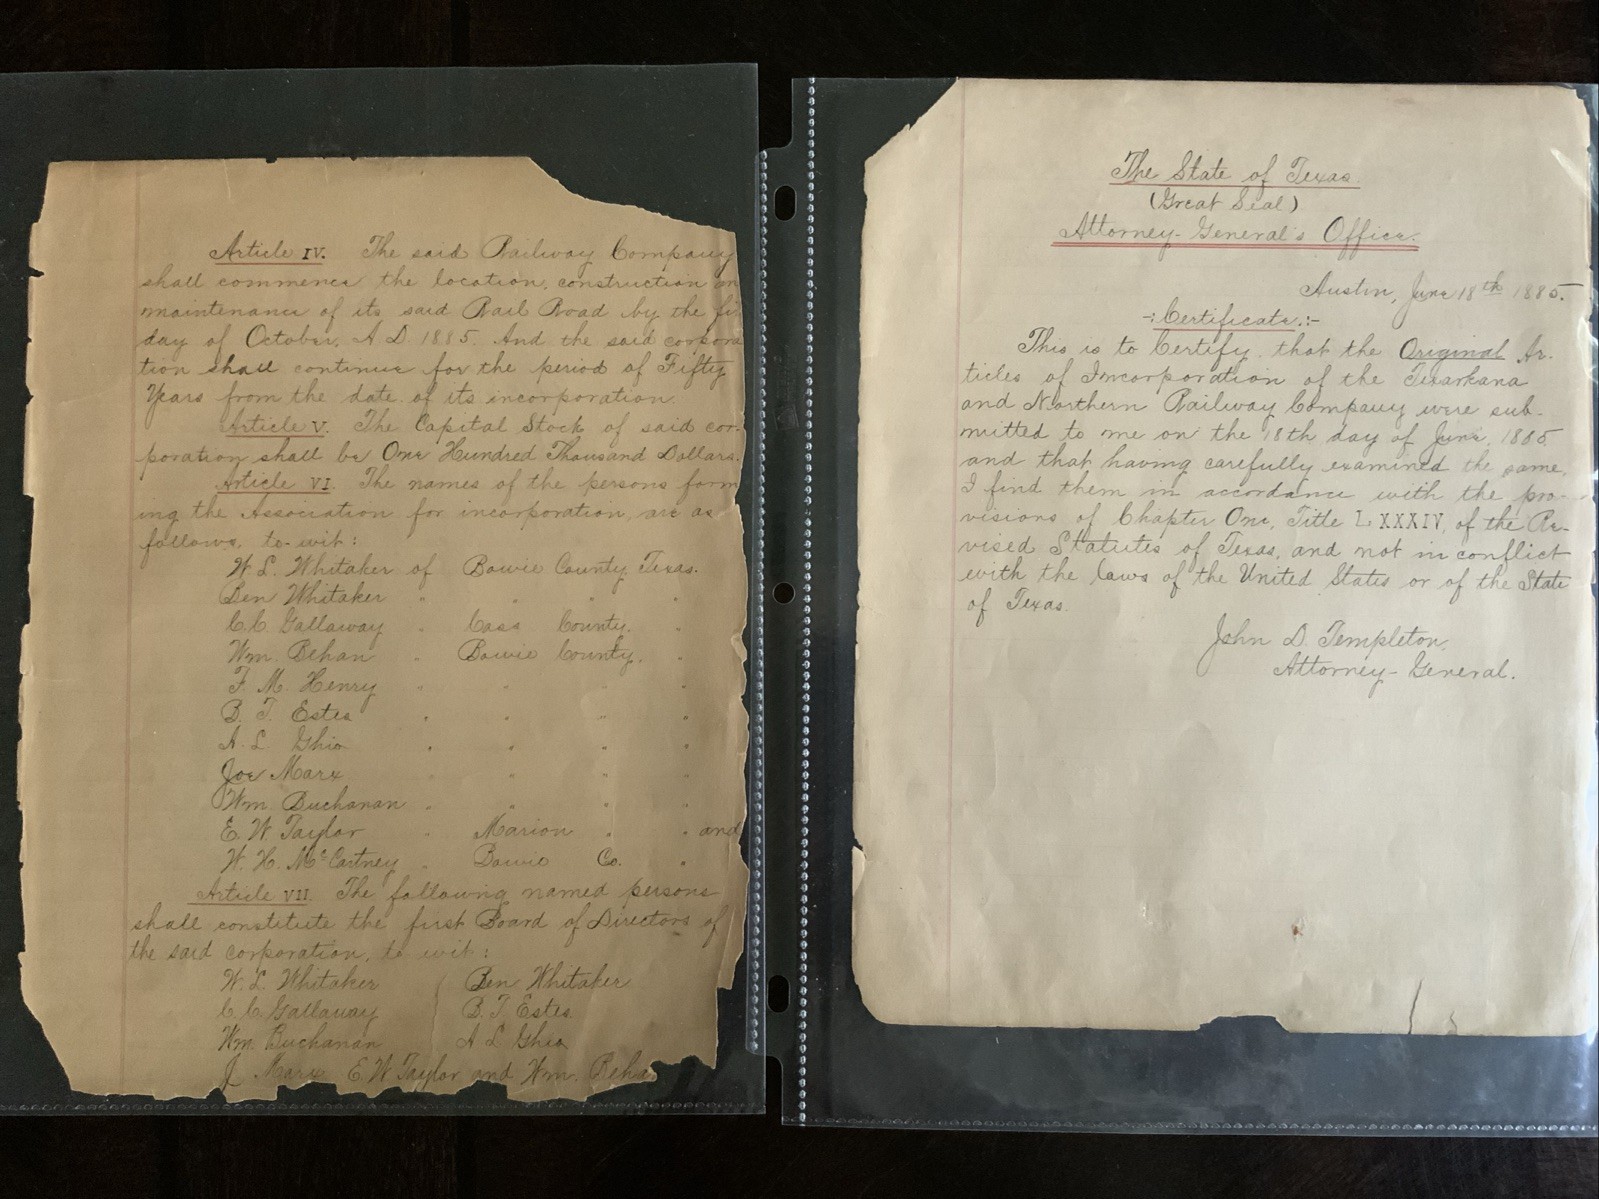 Article IV. The said Railway Company
shall commence the location, construction an
maintenance of its said Rail Road by the fi
day of October, A D. 1885. And the said corpora
tion shall continue for the period of Fifty
Years from the date of its incorporation.
Article V. The Capital Stock of said cor-
poration shall be One Hundred Thousand Dollars.
Article VI. The names of the persons form
ing the Association for incorporation, are as
follows, to-wit:
W. L. Whitaker of Bowie County Texas.
Ben Whitaker " " " "
C. C. Gallaway " Cass County. "
Wm. Behan " Bowie County. "
F. M. Henry " " " "
B. T. Estes " " " "
A. L. Ghio " " " "
Joe Marx " " " "
Wm. Buchanan " " " "
E. W. Taylor " Marion " " and
W. H. McCartney " Bowie Co. "
Article VII. The following named persons
shall constitute the first Board of Directors of
the said corporation, to wit:
W. L. Whitaker Ben Whitaker
C. C. Gallaway B. T. Estes
Wm. Buchanan A L Ghio
J Marx E. W Taylor and Wm. Beha
The State of Texas.
(Great Seal)
Attorney-General's Office.
Austin, June 18th 1885.
-:Certificate.:-
This is to Certify, that the Original Ar-
ticles of Incorporation of the Texarkana
and Northern Railway Company were sub-
mitted to me on the 18th day of June, 1885
and that having carefully examined the same,
I find them in accordance with the pro-
visions of Chapter One, Title LXXXIV, of the Re-
vised Statutes of Texas, and not in conflict
with the laws of the United States or of the State
of Texas.
John D. Templeton,
Attorney-General.